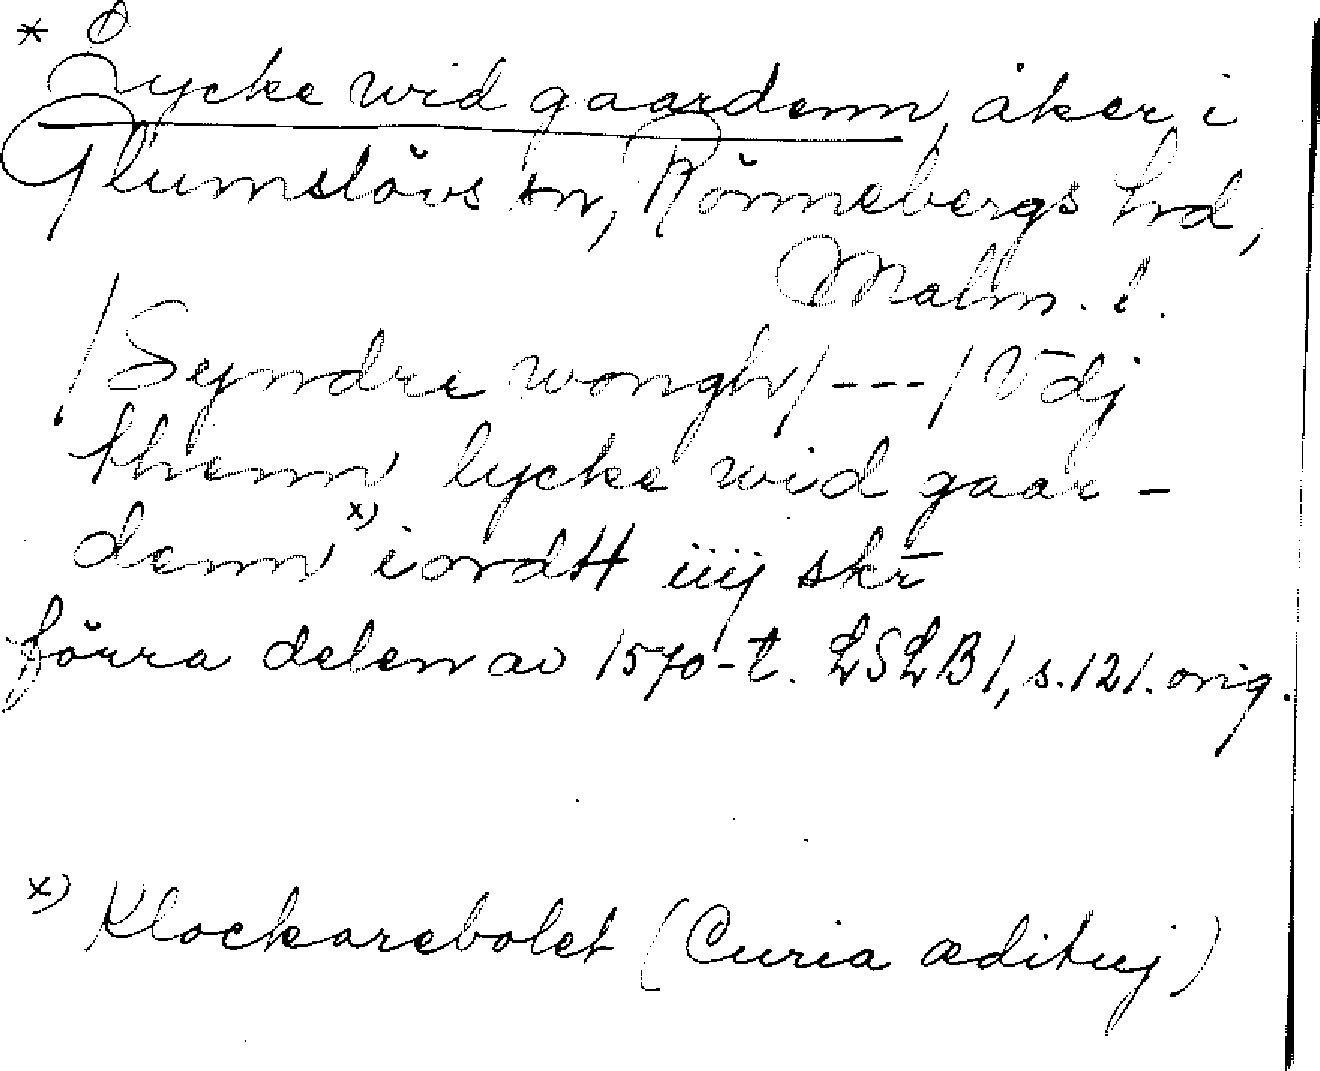 * Lycke wid gaardenn, åker i
Glumslövs sn, Rönnebergs hd,
Malm. l.
/Syndre wongh/---/ Vdj
thenn lycke wid gaar-
denn x) iordtt iiij skr̄
förra delen av 1570-t. LSLB1, s.121. orig.
x) Klockarebolet (Curia ædituj)